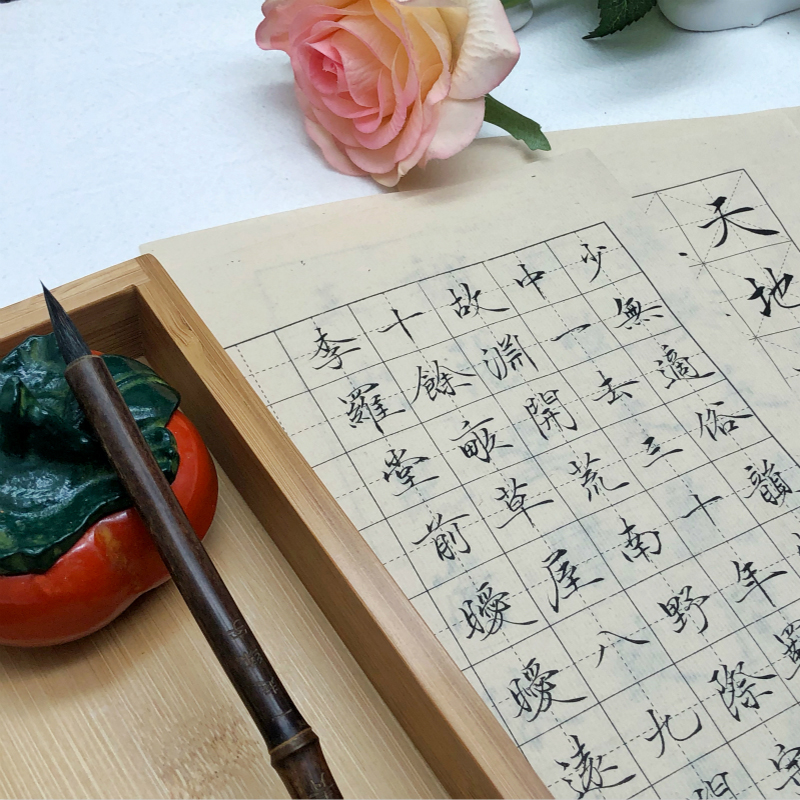 天地
少無適俗韻
中一去三十年
故淵開荒南野際
十餘畝草屋八九
李羅堂前曖曖遠